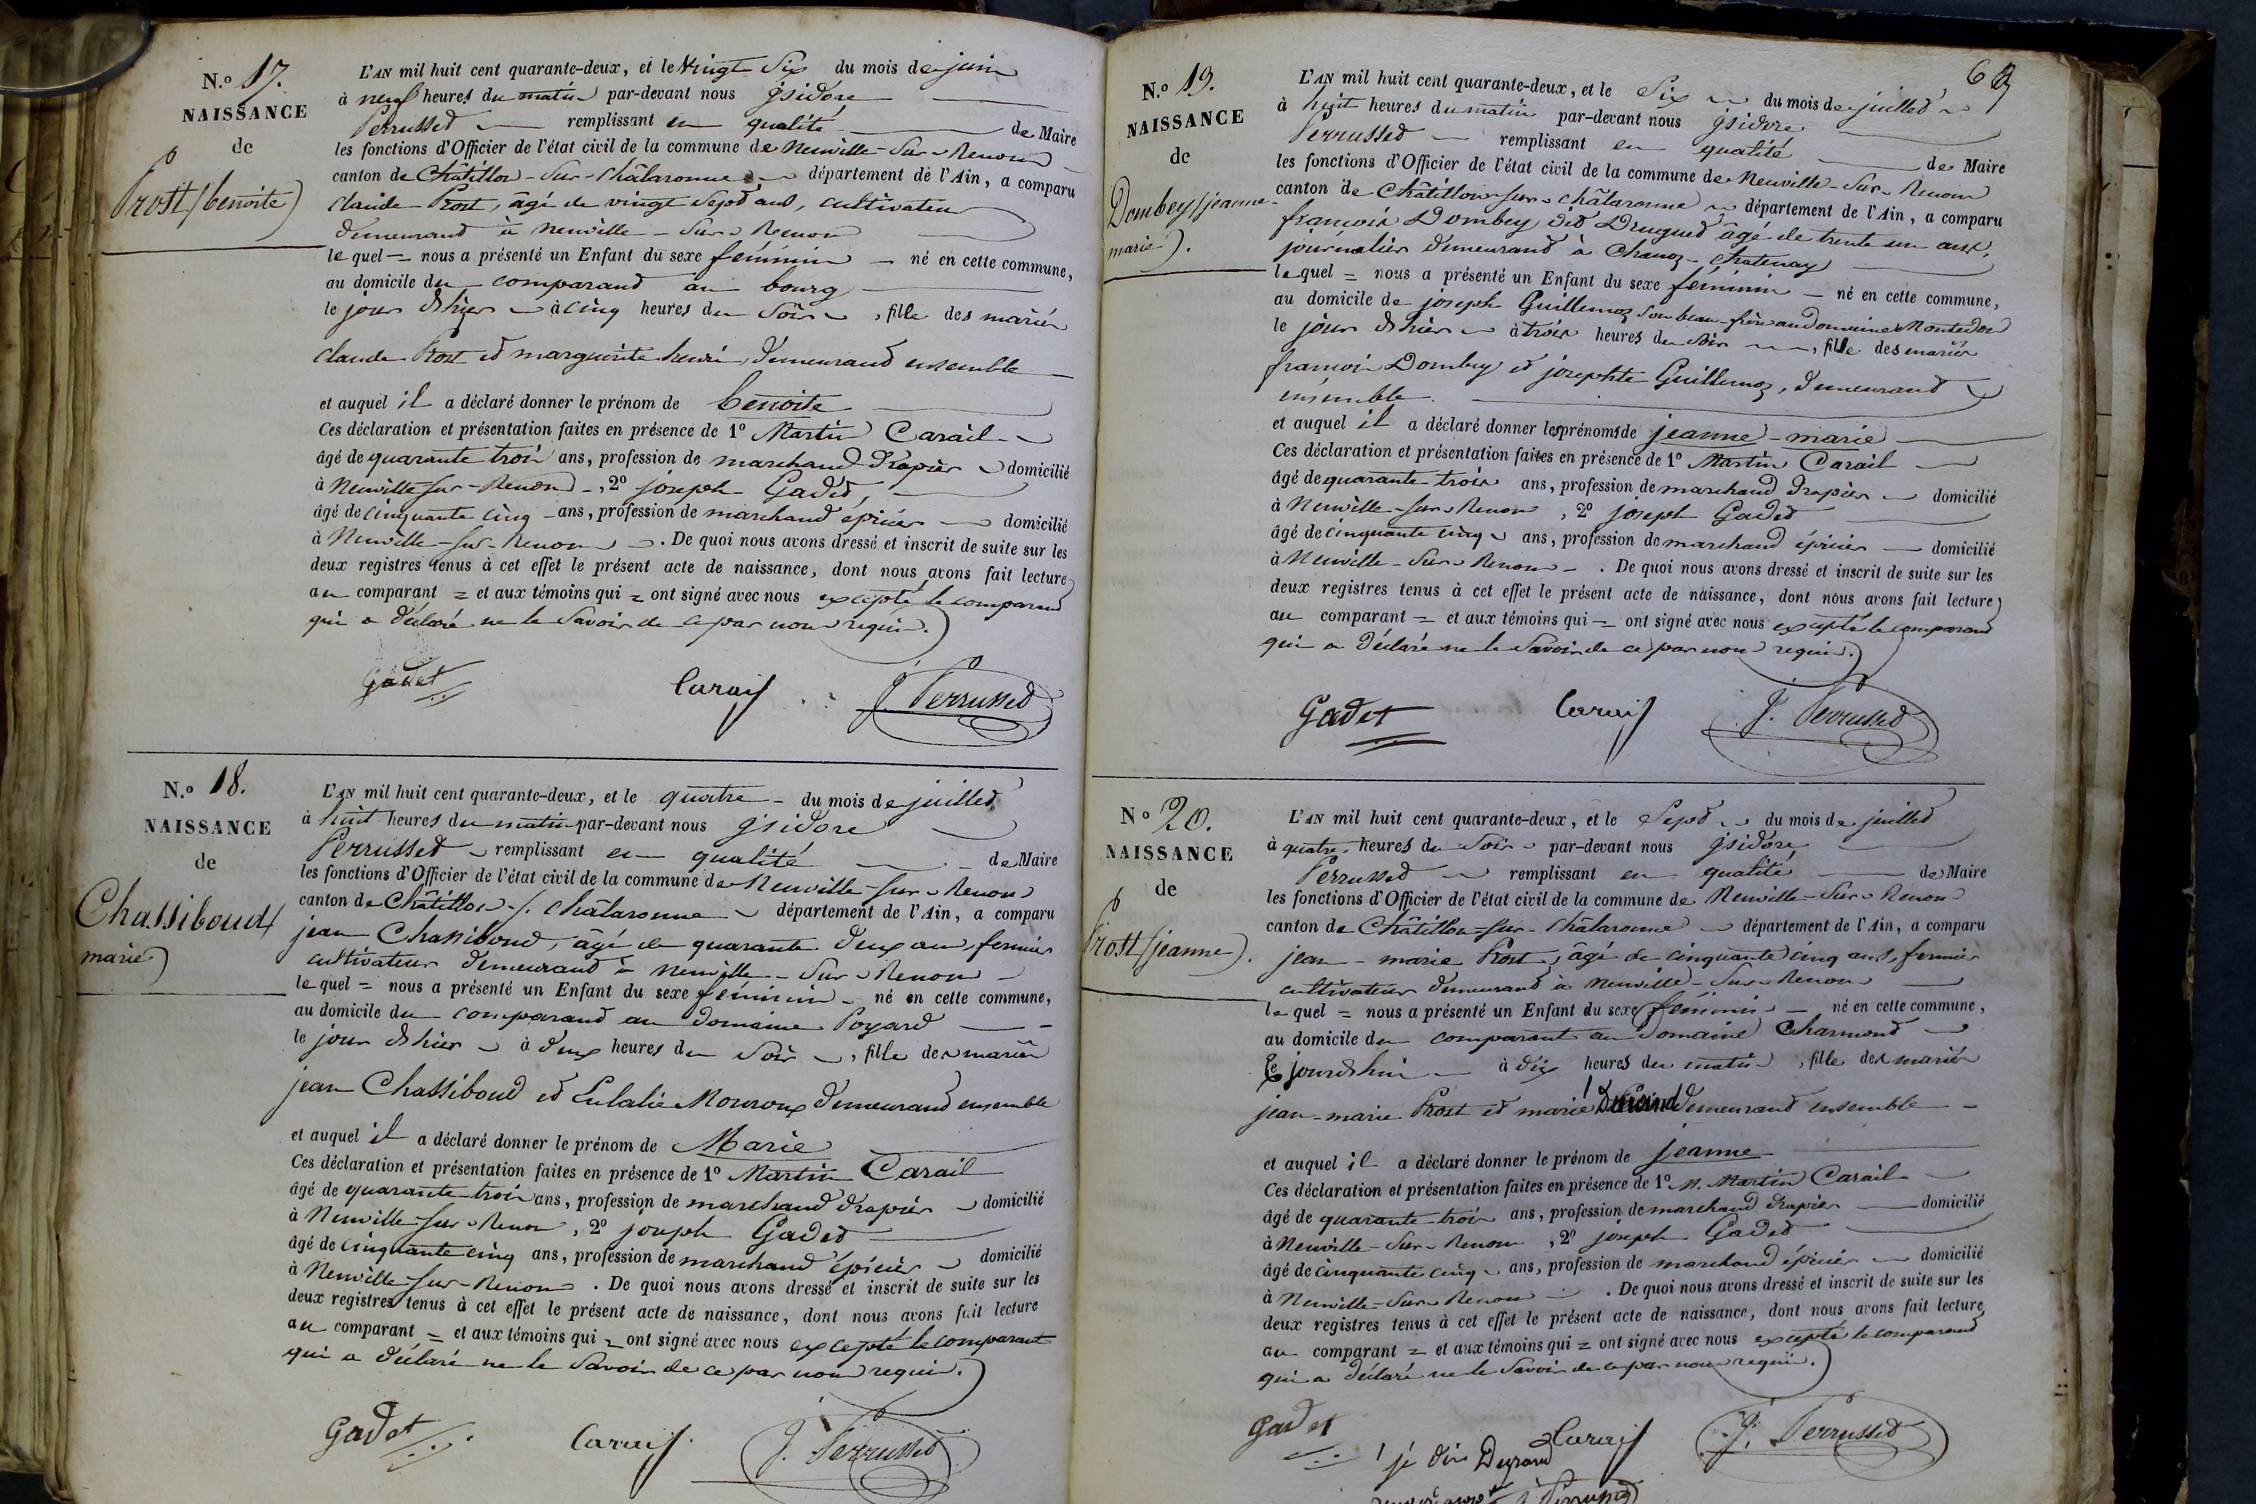 N.º 17.
NAISSANCE
de
Prost (benoite)
L'AN mil huit cent quarante-deux, et le vingt Six du mois de juin
à neuf heures du matin par-devant nous jsidore
Perrusset remplissant en qualité de Maire
les fonctions d'Officier de l'état civil de la commune de Neuville-Sur-Renom
canton de Châtillon-Sur-Châlaronne département de l'Ain, a comparu
claude Prost, âgé de vingt Sept ans, cultivateur
demeurant à neuville-Sur-Renom
lequel = nous a présenté un Enfant du sexe féminin né en cette commune,
au domicile du comparant au bourg
le jour d'hier à cinq heures du Soir, fille des mariés
claude Prost et marguerite henri, demeurant ensemble
et auquel il a déclaré donner le prénom de benoite
Ces déclaration et présentation faites en présence de 1º Martin Carail
âgé de quarante trois ans, profession de marchand drapier domicilié
à Neuville-sur-Renom, 2º joseph Gadet,
âgé de cinquante cinq ans, profession de marchand épicier domicilié
à Neuville-sur-Renom. De quoi nous avons dressé et inscrit de suite sur les
deux registres tenus à cet effet le présent acte de naissance, dont nous avons fait lecture
au comparant = et aux témoins qui = ont signé avec nous excepté le comparant
qui a déclaré ne le Savoir de ce par nous requis.
Gadet Carail J. Perrusset
N.º 18.
NAISSANCE
de
Chassiboud (
marie)
L'AN mil huit cent quarante-deux, et le quatre du mois de juillet
à huit heures du matin par-devant nous jsidore
Perrusset remplissant en qualité de Maire
les fonctions d'Officier de l'état civil de la commune de Neuville-sur-Renom
canton de Châtillon-s. châlaronne département de l'Ain, a comparu
jean Chassiboud, âgé de quarante deux ans, fermier
cultivateur demeurant à neuville-Sur-Renom
lequel = nous a présenté un Enfant du sexe féminin né en cette commune,
au domicile du comparant au domaine Poyard
le jour d'hier à deux heures du Soir, fille des mariés
jean Chassiboud et Eulalie Mouroux demeurant ensemble
et auquel il a déclaré donner le prénom de Marie
Ces déclaration et présentation faites en présence de 1º Martin Carail
âgé de quarante trois ans, profession de marchand drapier domicilié
à Neuville-sur-Renom, 2º joseph Gadet
âgé de cinquante cinq ans, profession de marchand épicier domicilié
à Neuville-sur-Renom. De quoi nous avons dressé et inscrit de suite sur les
deux registres tenus à cet effet le présent acte de naissance, dont nous avons fait lecture
au comparant = et aux témoins qui = ont signé avec nous excepté le comparant
qui a déclaré ne le Savoir de ce par nous requis.
Gadet Carail J. Perrusset
N.º 19.
NAISSANCE
de
Dombey (jeanne-
marie).
L'AN mil huit cent quarante-deux, et le Six du mois de juillet
à huit heures du matin par-devant nous jsidore
Perrusset remplissant en qualité de Maire
les fonctions d'Officier de l'état civil de la commune de Neuville-Sur-Renom
canton de Châtillon-sur-châlaronne département de l'Ain, a comparu
françois Dombey dit Druguet âgé de trente un ans,
journalier demeurant à Chanoz-chatenay
lequel = nous a présenté un Enfant du sexe féminin né en cette commune,
au domicile de joseph Guillemoz Son beau-frère au domaine Montedoz
le jour d'hier à trois heures du Soir, fille des mariés
françois Dombey et josephte Guillemoz, demeurant
ensemble.
et auquel il a déclaré donner les prénoms de jeanne-marie
Ces déclaration et présentation faites en présence de 1º Martin Carail
âgé de quarante-trois ans, profession de marchand drapier domicilié
à Neuville-sur-Renom, 2º joseph Gadet
âgé de cinquante cinq ans, profession de marchand épicier domicilié
à Neuville-Sur-Renom. De quoi nous avons dressé et inscrit de suite sur les
deux registres tenus à cet effet le présent acte de naissance, dont nous avons fait lecture
au comparant = et aux témoins qui = ont signé avec nous excepté le comparant
qui a déclaré ne le Savoir de ce par nous requis.
Gadet Carail J. Perrusset
Nº 20.
NAISSANCE
de
Prost (jeanne).
L'AN mil huit cent quarante-deux, et le Sept du mois de juillet
à quatre heures du Soir par-devant nous jsidore
Perrusset remplissant en qualité de Maire
les fonctions d'Officier de l'état civil de la commune de Neuville-Sur-Renom
canton de Châtillon-sur-Châlaronne département de l'Ain, a comparu
jean-marie Prost, âgé de cinquante cinq ans, fermier
cultivateur demeurant à Neuville-Sur-Renom
lequel = nous a présenté un Enfant du sexe féminin né en cette commune,
au domicile du comparant au domaine Charmond
le jourd'hui à dix heures du matin, fille des mariés
jean-marie Prost et marie demeurant ensemble
et auquel il a déclaré donner le prénom de jeanne
Ces déclaration et présentation faites en présence de 1º M. Martin Carail
âgé de quarante trois ans, profession de marchand drapier domicilié
à Neuville-Sur-Renom, 2º joseph Gadet
âgé de cinquante cinq ans, profession de marchand épicier domicilié
à Neuville-Sur-Renom. De quoi nous avons dressé et inscrit de suite sur les
deux registres tenus à cet effet le présent acte de naissance, dont nous avons fait lecture
au comparant = et aux témoins qui = ont signé avec nous excepté le comparant
qui a déclaré ne le Savoir de ce par nous requis.
Gadet Carail J. Perrusset
je dis Degrand
J. Perrusset